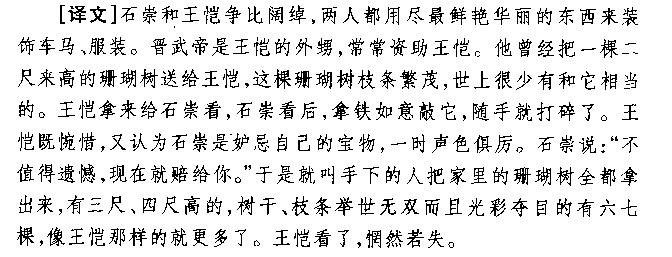 [译文]石崇和王恺争比阔绰,两人都用尽最鲜艳华丽的东西来装
饰车马、服装。晋武帝是王恺的外甥,常常资助王恺。他曾经把一棵二
尺来高的珊瑚树送给王恺,这棵珊瑚树枝条繁茂,世上很少有和它相当
的。王恺拿来给石崇看,石崇看后,拿铁如意敲它,随手就打碎了。王
恺既惋惜,又认为石崇是妒忌自己的宝物,一时声色俱厉。石崇说:“不
值得遗憾,现在就赔给你。”于是就叫手下的人把家里的珊瑚树全都拿
出来,有三尺、四尺高的,树干、枝条举世无双而且光彩夺目的有六七
棵,像王恺那样的就更多了。王恺看了,惘然若失。